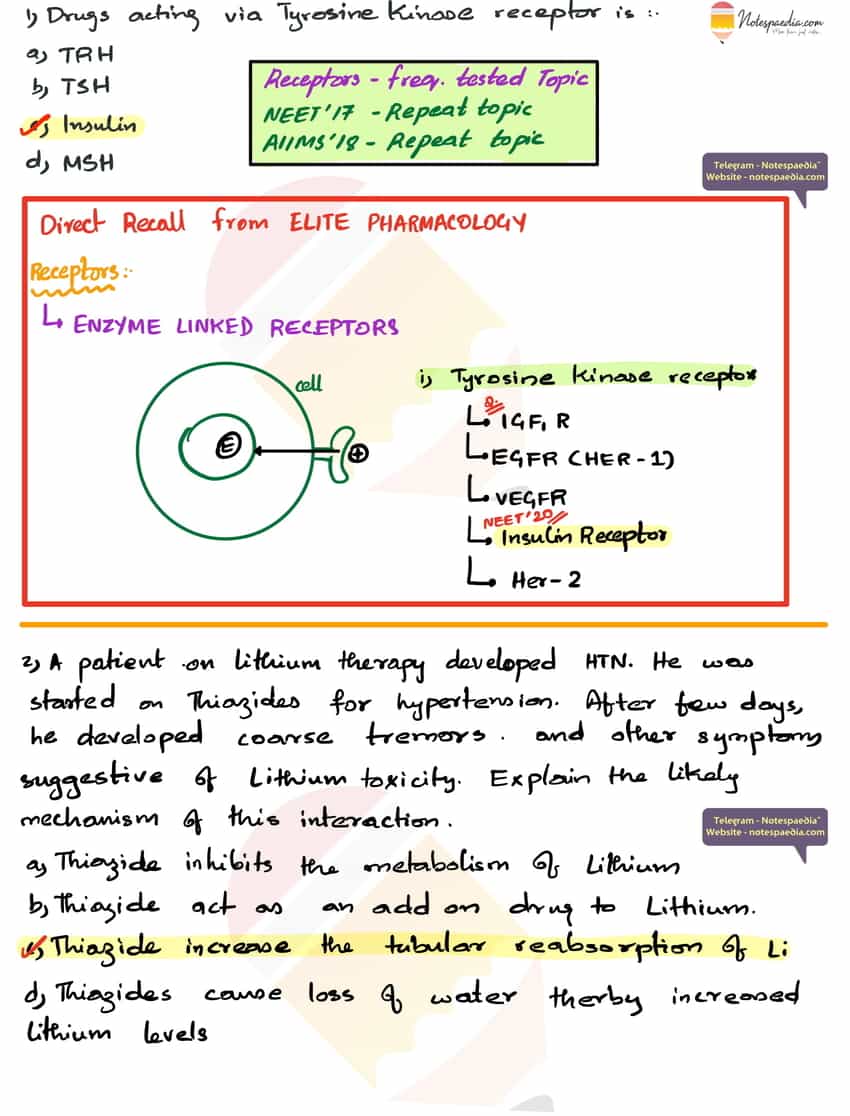 1) Drugs acting via Tyrosine Kinase receptor is :-
Notespaedia.com
a) TRH
b) TSH
c) Insulin
d) MSH
Receptors - freq. tested Topic
NEET'17 - Repeat topic
AIIMS'18 - Repeat topic
Telegram - Notespaedia
Website - notespaedia.com
Direct Recall from ELITE PHARMACOLOGY
Receptors :-
ENZYME LINKED RECEPTORS
cell
E
+
i) Tyrosine Kinase receptor
Q.
IGF1 R
EGFR (HER-1)
VEGFR
NEET'20
Insulin Receptor
Her-2
2) A patient on lithium therapy developed HTN. He was
started on Thiazides for hypertension. After few days,
he developed coarse tremors. and other symptoms
suggestive of Lithium toxicity. Explain the likely
mechanism of this interaction.
Telegram - Notespaedia
Website - notespaedia.com
a) Thiazide inhibits the metabolism of Lithium
b) Thiazide act as an add on drug to Lithium.
c) Thiazide increase the tubular reabsorption of Li
d) Thiazides cause loss of water therby increased
lithium levels